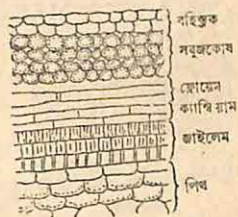 বহিস্তক
সবুজকোষ
ফ্লোয়েম
ক্যাম্বিয়াম
জাইলেম
পিথ